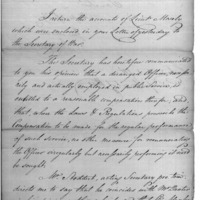 I return the accounts of Lieut
which are enclosed in your Letter of yesterday to
the Secretary of War.
The Secretary has heretofore communicated
to you his opinion that a deranged Officer, necessa-
rily and actually employed in public Service, is
entitled to a reasonable compensation therefor; and
that, where the Laws & Regulations presume to the
compensation to be made for the regular performance
of such service, no other measure for
the Officer irregularly but necessarily performing it need
be sought.
Mr acting Secretary pro tem:
directs me to say that he coincides with Mr